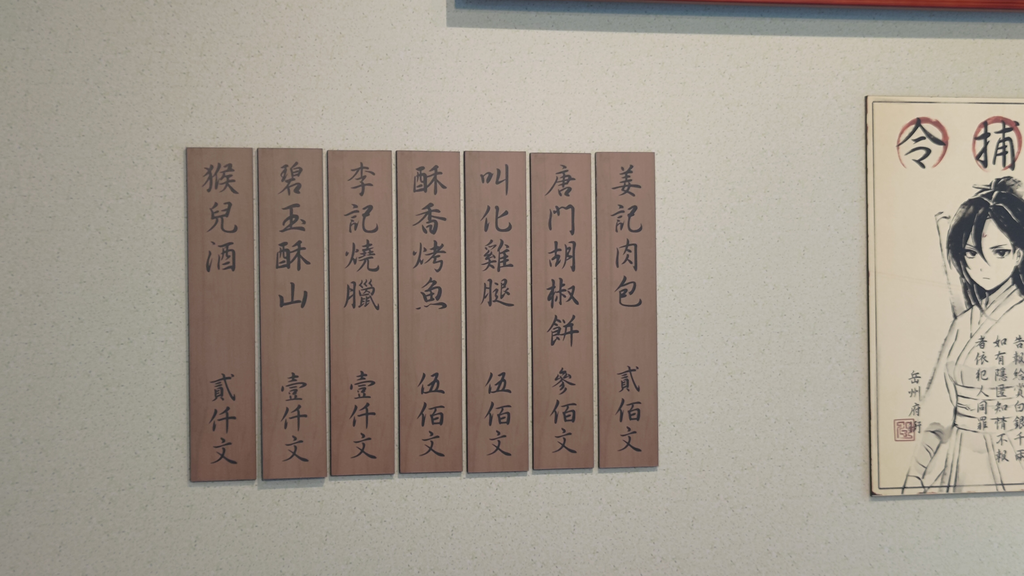 姜記肉包 貳佰文
唐門胡椒餅 參佰文
叫化雞腿 伍佰文
酥香烤魚 伍佰文
李記燒臘 壹仟文
碧玉酥山 壹仟文
猴兒酒 貳仟文
捕令
如有隱匿知情不
者依犯人同罪
岳州府